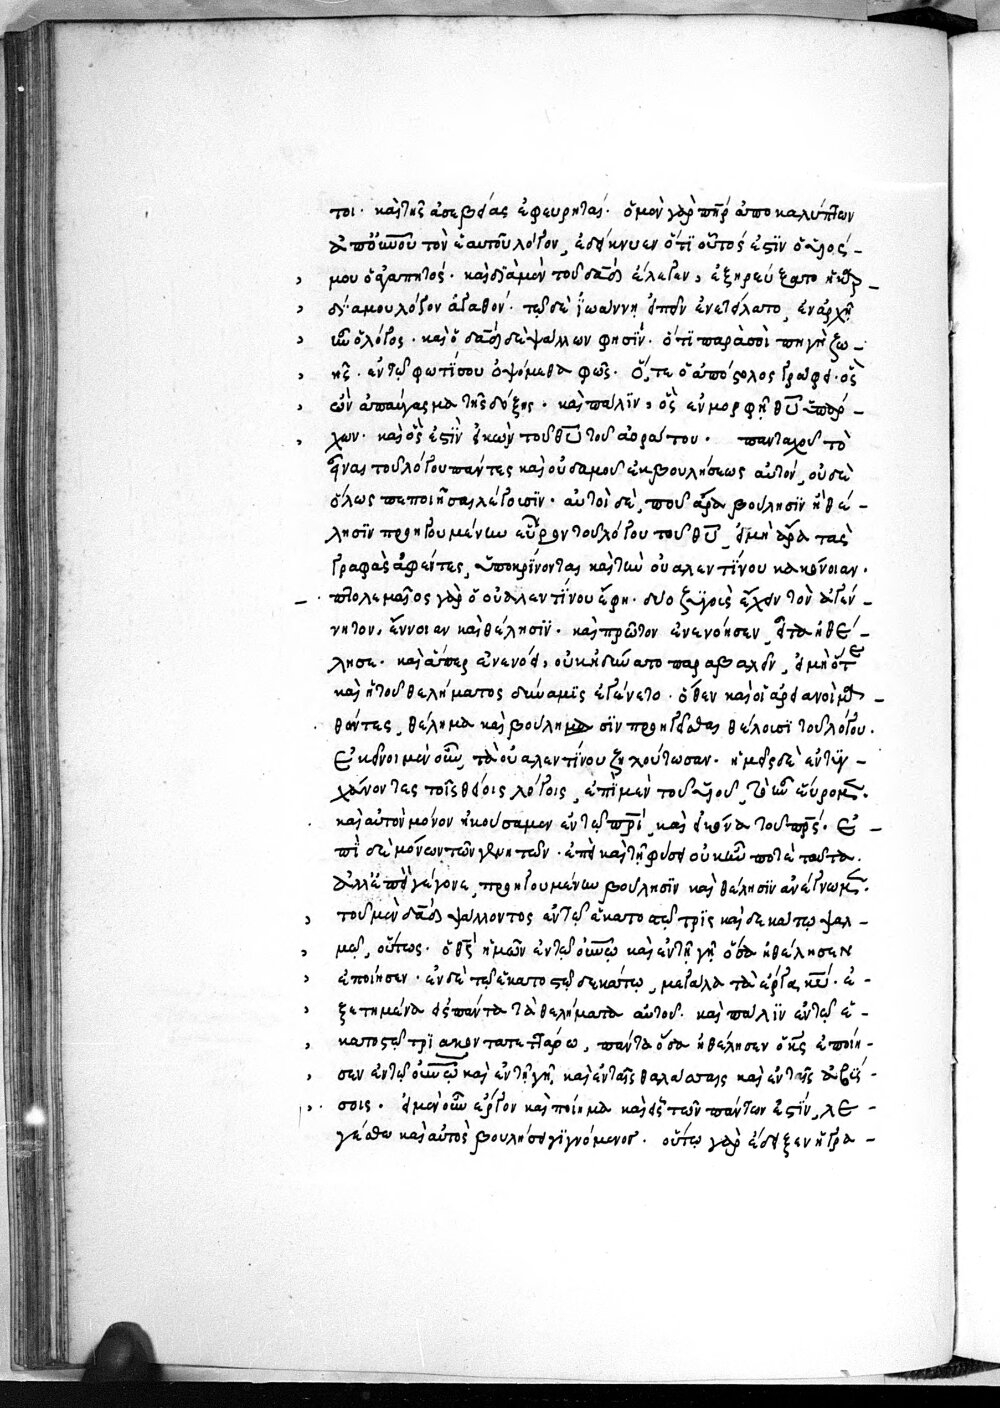 τοι· καὶ τῆς ἀσεβείας ἐφευρηταί· ὁ μὲν γὰρ πηρ ἀποκαλύπτων
ἀπ' οὐνοῦ τὸν ἑαυτοῦ λόγον, ἐδείκνυεν ὅτι οὗτός ἐστιν ὁ υἱός
μου ὁ ἀγαπητός· καὶ διὰ μὲν τοῦ δαδ ἔλεγεν, ἐξηρεύξατο ἡ καρ-
δία μου λόγον ἀγαθόν· τῷ δὲ ἰωάννῃ εἰπεῖν ἐνετείλατο, ἐν ἀρχῇ
ἦν ὁ λόγος· καὶ ὁ δαδ δὲ ψάλλων φησίν· ὅτι παρὰ σοὶ πηγὴ ζω-
ῆς· ἐν τῷ φωτί σου ὀψόμεθα φῶς· ὅ, τε ὁ ἀπόστολος γράφει· ὃς
ὢν ἀπαύγασμα τῆς δόξης· καὶ πάλιν, ὃς ἐν μορφῇ θυ ὑπάρ-
χων· καὶ ὅς ἐστιν εἰκὼν τοῦ θυ τοῦ ἀοράτου· πανταχοῦ τὸ
εἶναι τοῦ λόγου πάντες καὶ οὐδαμοῦ ἐκ βουλήσεως αὐτόν, οὐδὲ
ὅλως πεποιῆσθαι λέγουσιν· αὐτοὶ δὲ, ποῦ ἄρα βούλησιν ἢ θέ-
λησιν προηγουμένην εὗρον τοῦ λόγου τοῦ θυ, εἰ μὴ ἄρα τὰς
γραφὰς ἀφέντες, ὑποκρίνονται καὶ τὴν οὐαλεντίνου κακόνοιαν·
πτολεμαῖος γὰρ ὁ οὐαλεντίνου ἔφη· δύο ζυγοὺς ἔχειν τὸν ἀγέν-
νητον, ἔννοιαν καὶ θέλησιν· καὶ πρῶτον ἐνενόησεν, εἶτα ἠθέ-
λησε· καὶ ἅπερ ἐνενόει, οὐκ ἠδύνατο παραβαλεῖν, εἰ μὴ ὅτε
καὶ ἡ τοῦ θελήματος δύναμις ἐγένετο· ὅθεν καὶ οἱ ἀρειανοὶ μα-
θόντες, θέλημα καὶ βούλημα σιν προηγεῖσθαι θέλουσι τοῦ λόγου·
ἐκεῖνοι μὲν οὖν, τὰ οὐαλεντίνου ζηλούτωσαν· ἡμεῖς δὲ ἐντυγ-
χάνοντες τοῖς θείοις λόγοις, ἐπὶ μὲν τοῦ υἱοῦ, τὸ ἦν εὕρομεν·
καὶ αὐτὸν μόνον ἠκούσαμεν ἐν τῷ πρι, καὶ εἰκόνα τοῦ πρς· ἐ-
πὶ δὲ μόνων τῶν γενητῶν· ἐπεὶ καὶ τῇ φύσει οὐκ ἦν ποτὲ ταῦτα·
ἀλλ' ἐπιγέγονε, προηγουμένην βούλησιν καὶ θέλησιν ἀνέγνωμεν·
τοῦ μὲν δαδ ψάλλοντος ἐν τῷ ἑκατοστῷ τρισκαιδεκάτῳ ψαλ-
μῷ, οὕτως· ὁ θς ἡμῶν ἐν τῷ οὐνῷ καὶ ἐν τῇ γῇ ὅσα ἠθέλησεν
ἐποίησεν· ἐν δὲ τῷ ἑκατοστῷ δεκάτῳ, μεγάλα τὰ ἔργα κυ· ἐ-
ξητημένα εἰς πάντα τὰ θελήματα αὐτοῦ· καὶ πάλιν ἐν τῷ ἑ-
κατοστῷ τριακοντατετάρτω, πάντα ὅσα ἠθέλησεν ὁ κς ἐποίη-
σεν ἐν τῷ οὐνῷ καὶ ἐν τῇ γῇ, καὶ ἐν ταῖς θαλάσσαις καὶ ἐν ταῖς ἀβύσ-
σοις· εἰ μὲν οὖν ἔργον καὶ ποίημα καὶ εἷς τῶν πάντων ἐστίν, λε-
γέσθω καὶ αὐτὸς βουλήσει γιγνόμενος· οὕτω γὰρ ἔδειξεν ἡ γρα-